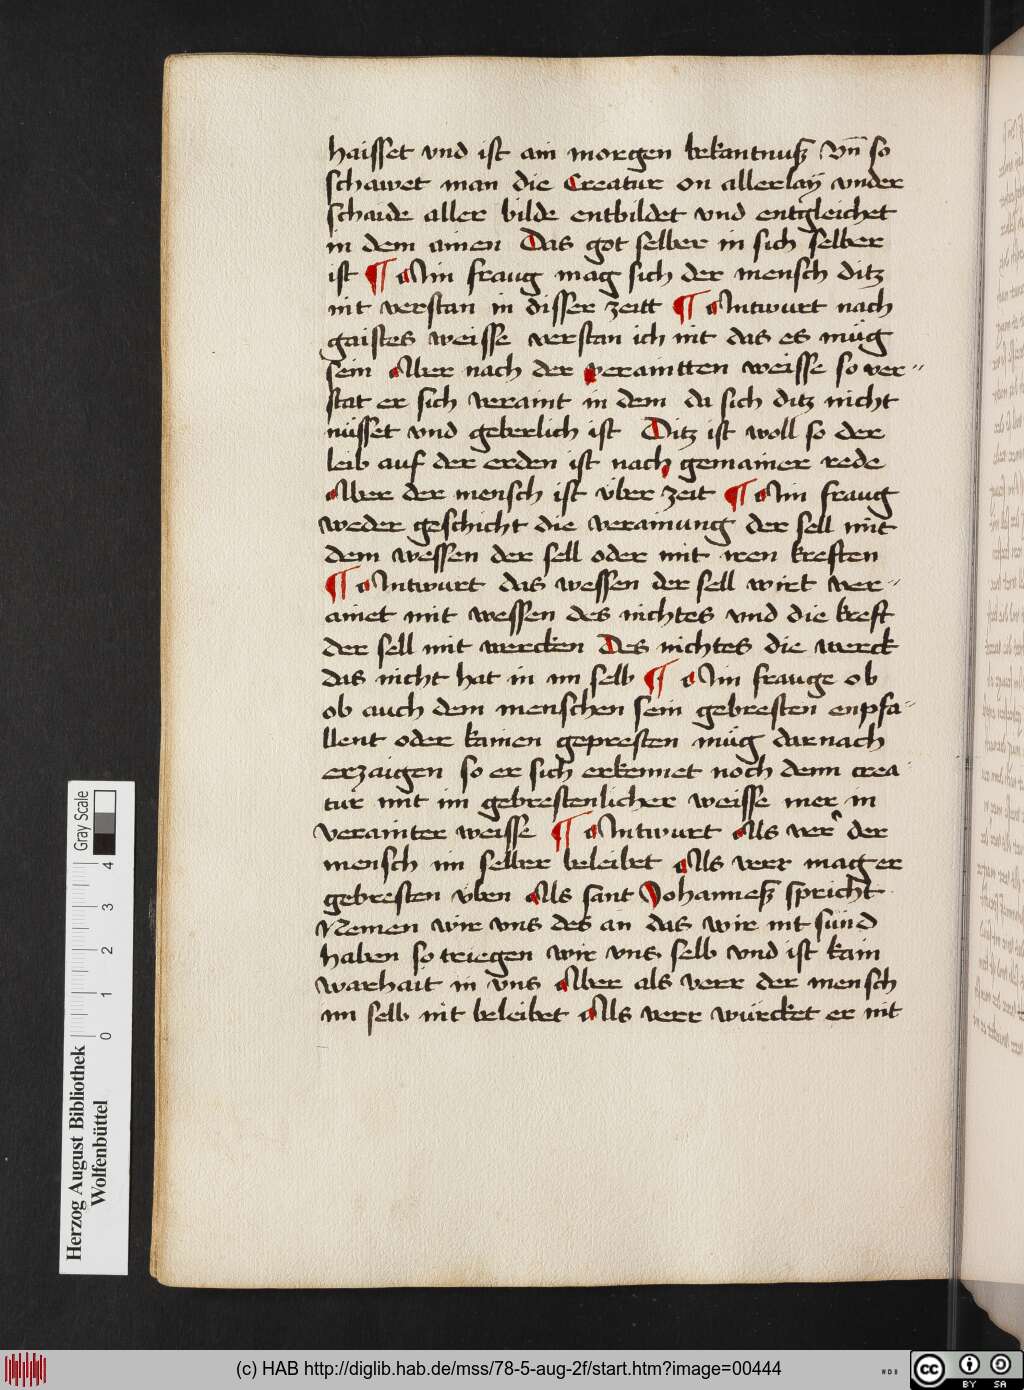 haisset vnd ist ain morgen bekantnuß Vn̄ so
schawet man die Creatur on allerlaÿ vnder
schaide aller bilde entbildet vnd entgleichet
in dem ainen Das got selber in sich selber
ist ¶ Ain fraug mag sich der mensch ditz
nit verstan in disser zeitt ¶ Antwurt nach
gaistes weisse verstan ich nit das es müg
sein Aber nach der veraintten weisse so ver-
stat er sich veraint in dem da sich ditz nicht
nüsset vnd geberlich ist Ditz ist woll so der
leib auf der erden ist nach gemainer rede
Aber der mensch ist über zeit ¶ Ain fraug
weder geschicht die verainung der sell mit
dem wessen der sell oder mit iren kreften
¶ Antwurt das wessen der sell wirt ver-
ainet mit wessen des nichtes vnd die kreft
der sell mit wercken Des nichtes die werck
das nicht hat in im selb ¶ Ain frauge ob
ob auch dem menschen sein gebresten enpfa-
llent oder kainen gepresten müg darnach
erzaigen so er sich erkennet noch denn crea
tur mit im gebrestenlicher weisse mer in
verainter weisse ¶ Antwurt Als ver der
mensch im selber beleibet Als verr mag er
gebresten üben Als sant Johanneß spricht
Nemen wir vns des an das wir nit sünd
haben so triegen wir vns selb vnd ist kain
warhait in vns Aber als verr der mensch
im selb nit beleibet Als verr würcket er nit
Gray Scale
0 1 2 3 4
Herzog August Bibliothek
Wolfenbüttel
(c) HAB http://diglib.hab.de/mss/78-5-aug-2f/start.htm?image=00444
cc BY SA